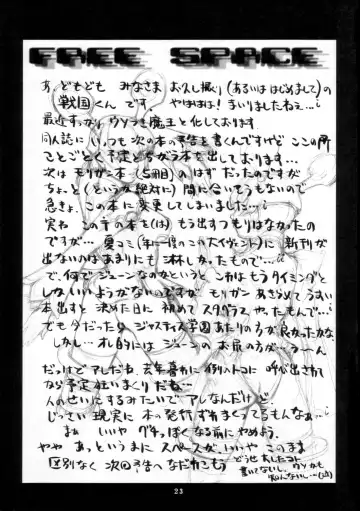 FREE SPACE
あ、どもども みなさま お久し振り(あるいははじめまして)の
戦国くんです。やははは! まいりましたねえ…
最近すっかりウソつき魔王と化しております。
同人誌にいつも次の本の予告を書くんですけど ここの所
ことごとく予定とちがう本を出しております…
次はモリガン本(5冊目)のはずだったのですが
ちょーと(というか絶対に)間に合いそうもないので
急きょ、この本に変更してしまいました…
実ねこの手の本をはもう出すつもりはなかったの
ですが…夏コミ(年一度のこの大イヴェント)に新刊が
出ないのはあまりにも淋しかったもので…
で、何でジューンなのかというと これはもうタイミングと
しかいいようがないのですが モリガン あきらめてうすい
本出すと決めた日に 初めて スタグラス やったもんで…
でも今だったら ジャスティス学園あたりの方が良かったかな
しかし…オレ的には ジューンの お尻の方が…うーん
だってアレだね、去年暮れに例のトコに呼び出されて
から予定狂いまくりだね…
人のせいにするみたいで アレなんだけど
じっさい現実に本の発行ずれまくってるもんなぁ…
まぁ いいや グチっぽくなる前にやめよう。
やや あっというまに スペースが、いいや このまま
区別なく 次回予告へ なだれこもう
どうせあしたコト
書いてないし、ウソかも
知んないし…(泣)
23